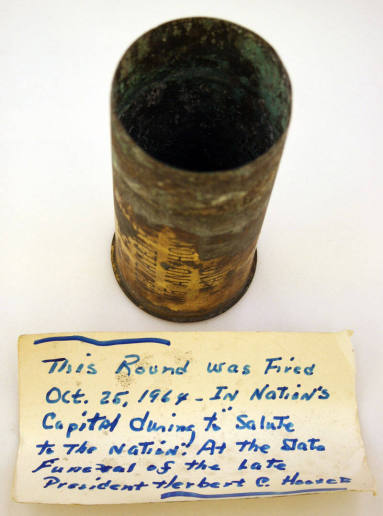 This Round was Fired
Oct. 25, 1964 - In Nation's
Capitol during to "Salute
to The Nation". At the State
Funeral of the Late
President Herbert C. Hoover